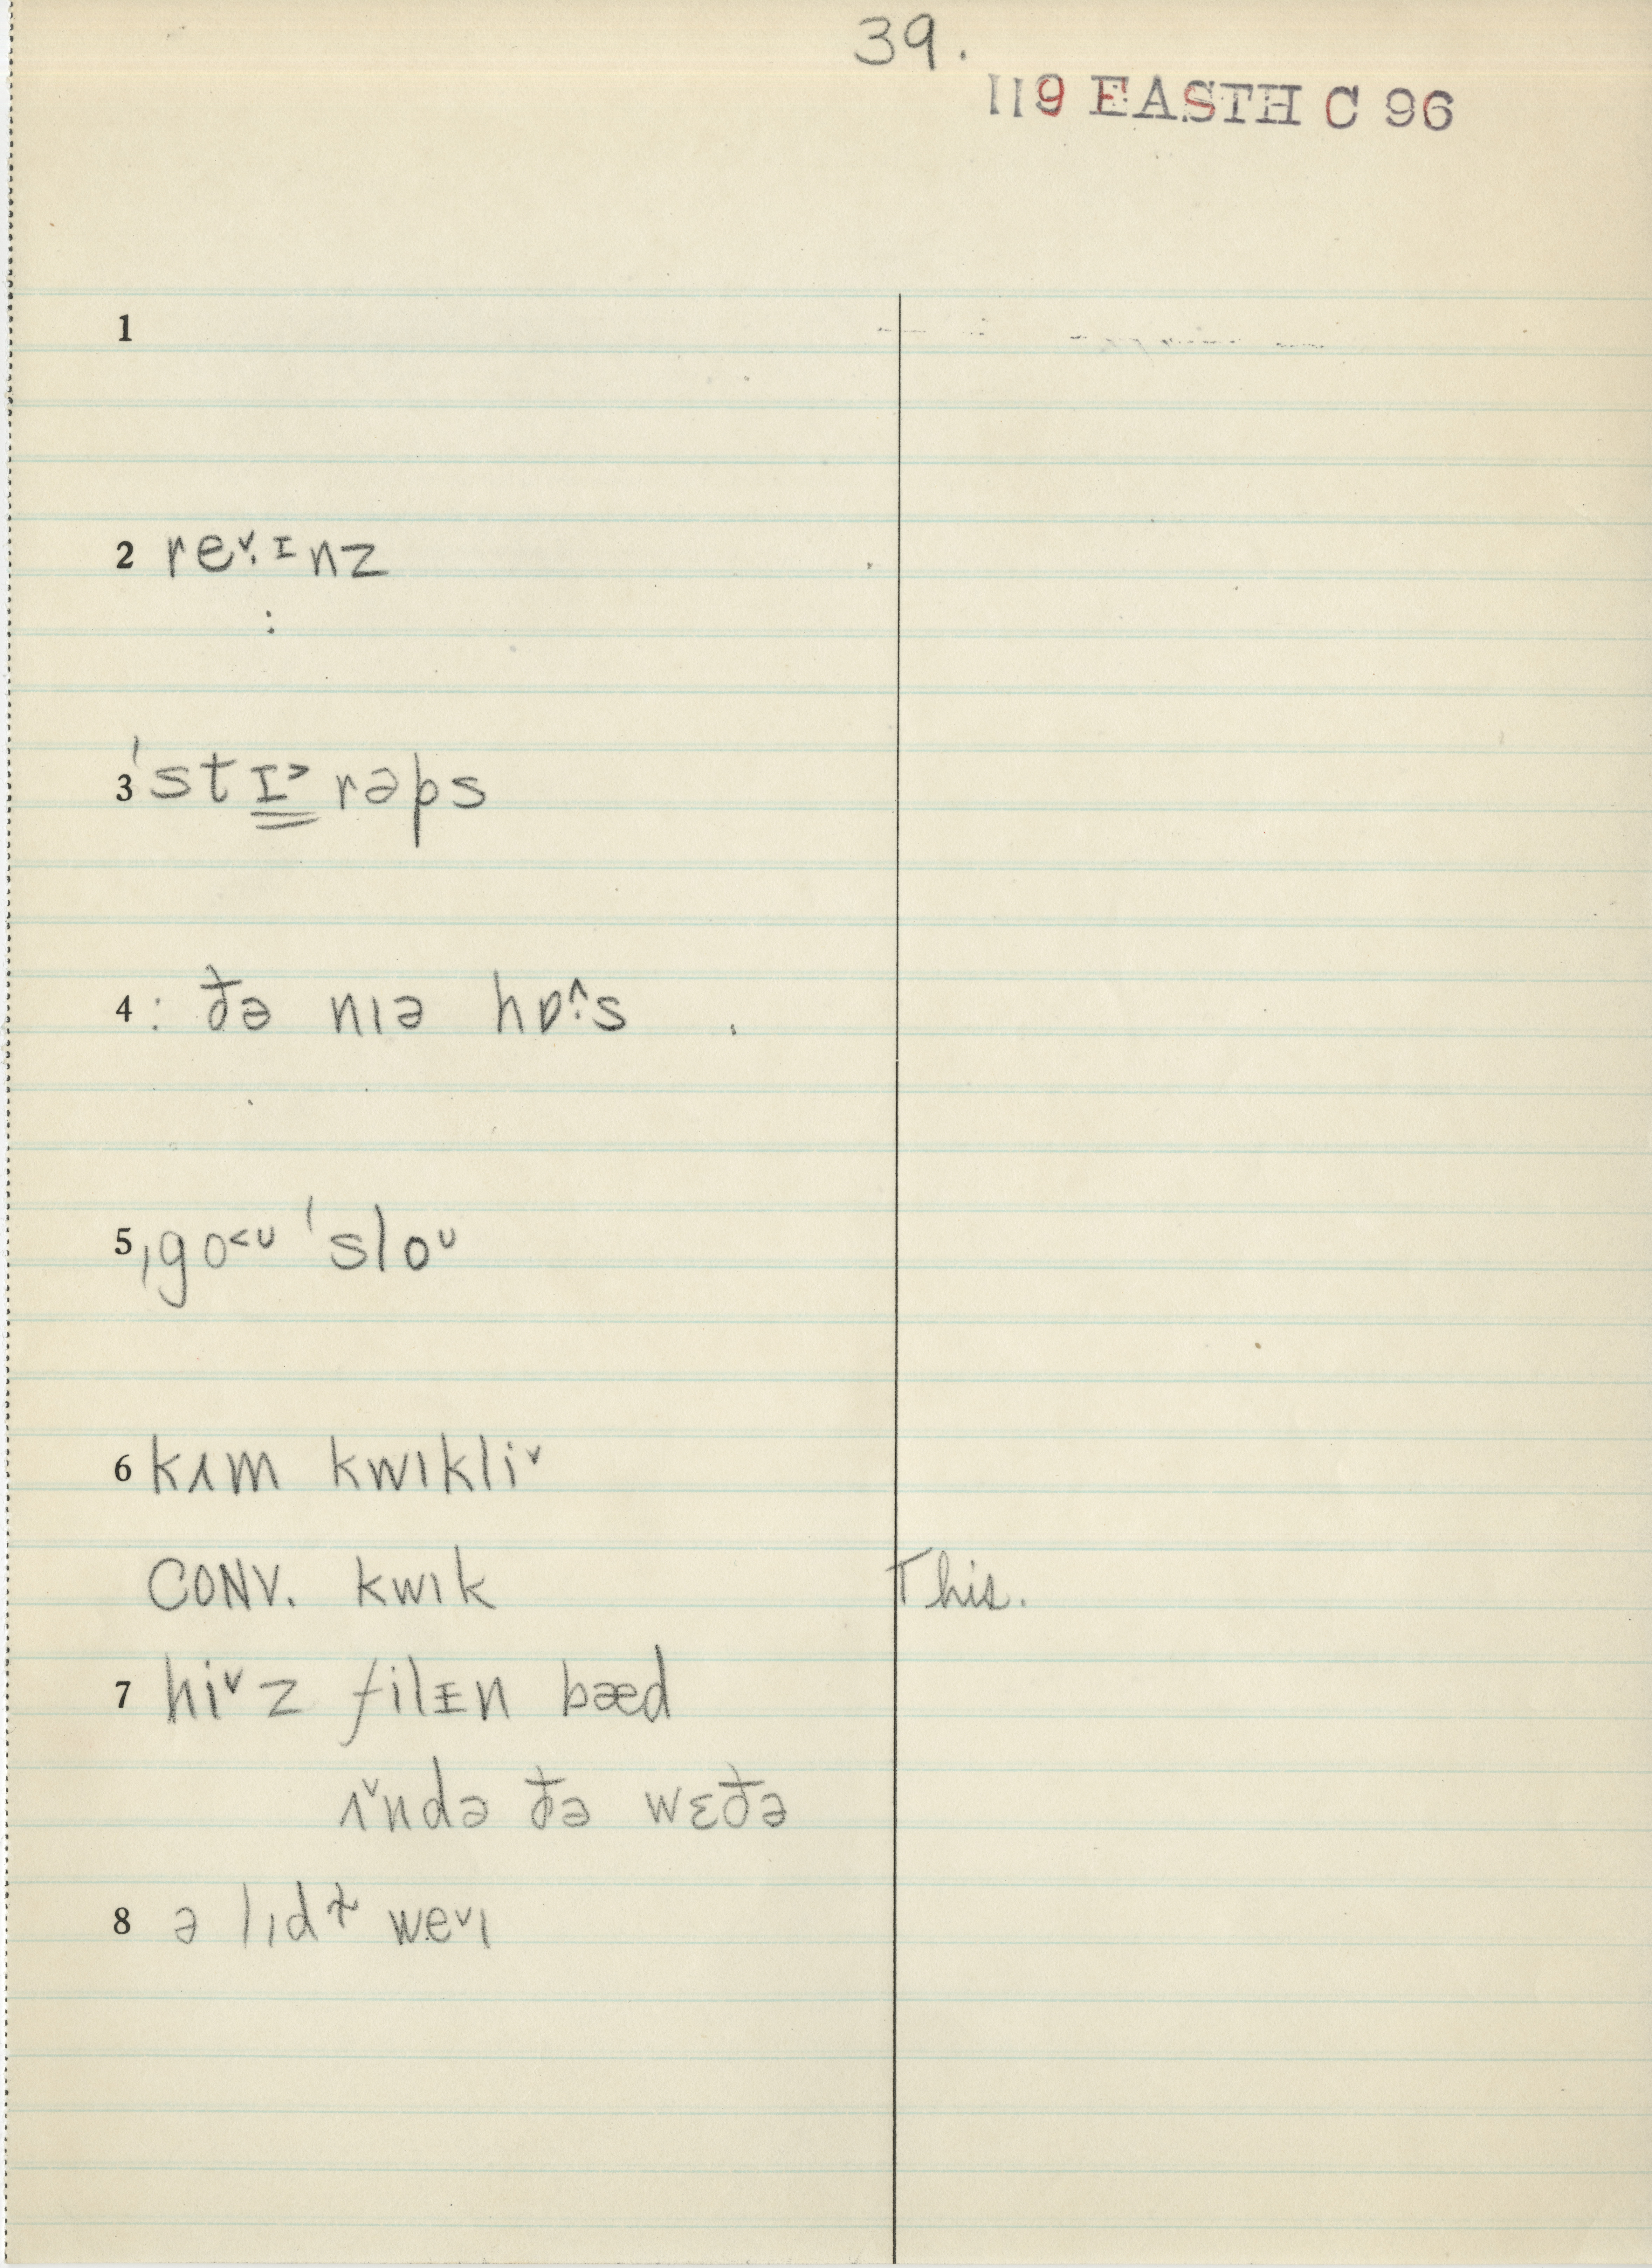 39.
119 EASTH C 96
1
2 reˇ·ᶦnz
:
3 ˈstɪ˃rəps
4 : ðə nıə hɒ^:s .
5 ˌgo˂ᵁ ˈsloᵁ
6 kʌm kwıkliˇ
CONV. kwık This.
7 hiˇz filɪn bæd
ʌˇndə ðə wɛðə
8 ə lıdɫ weˇı